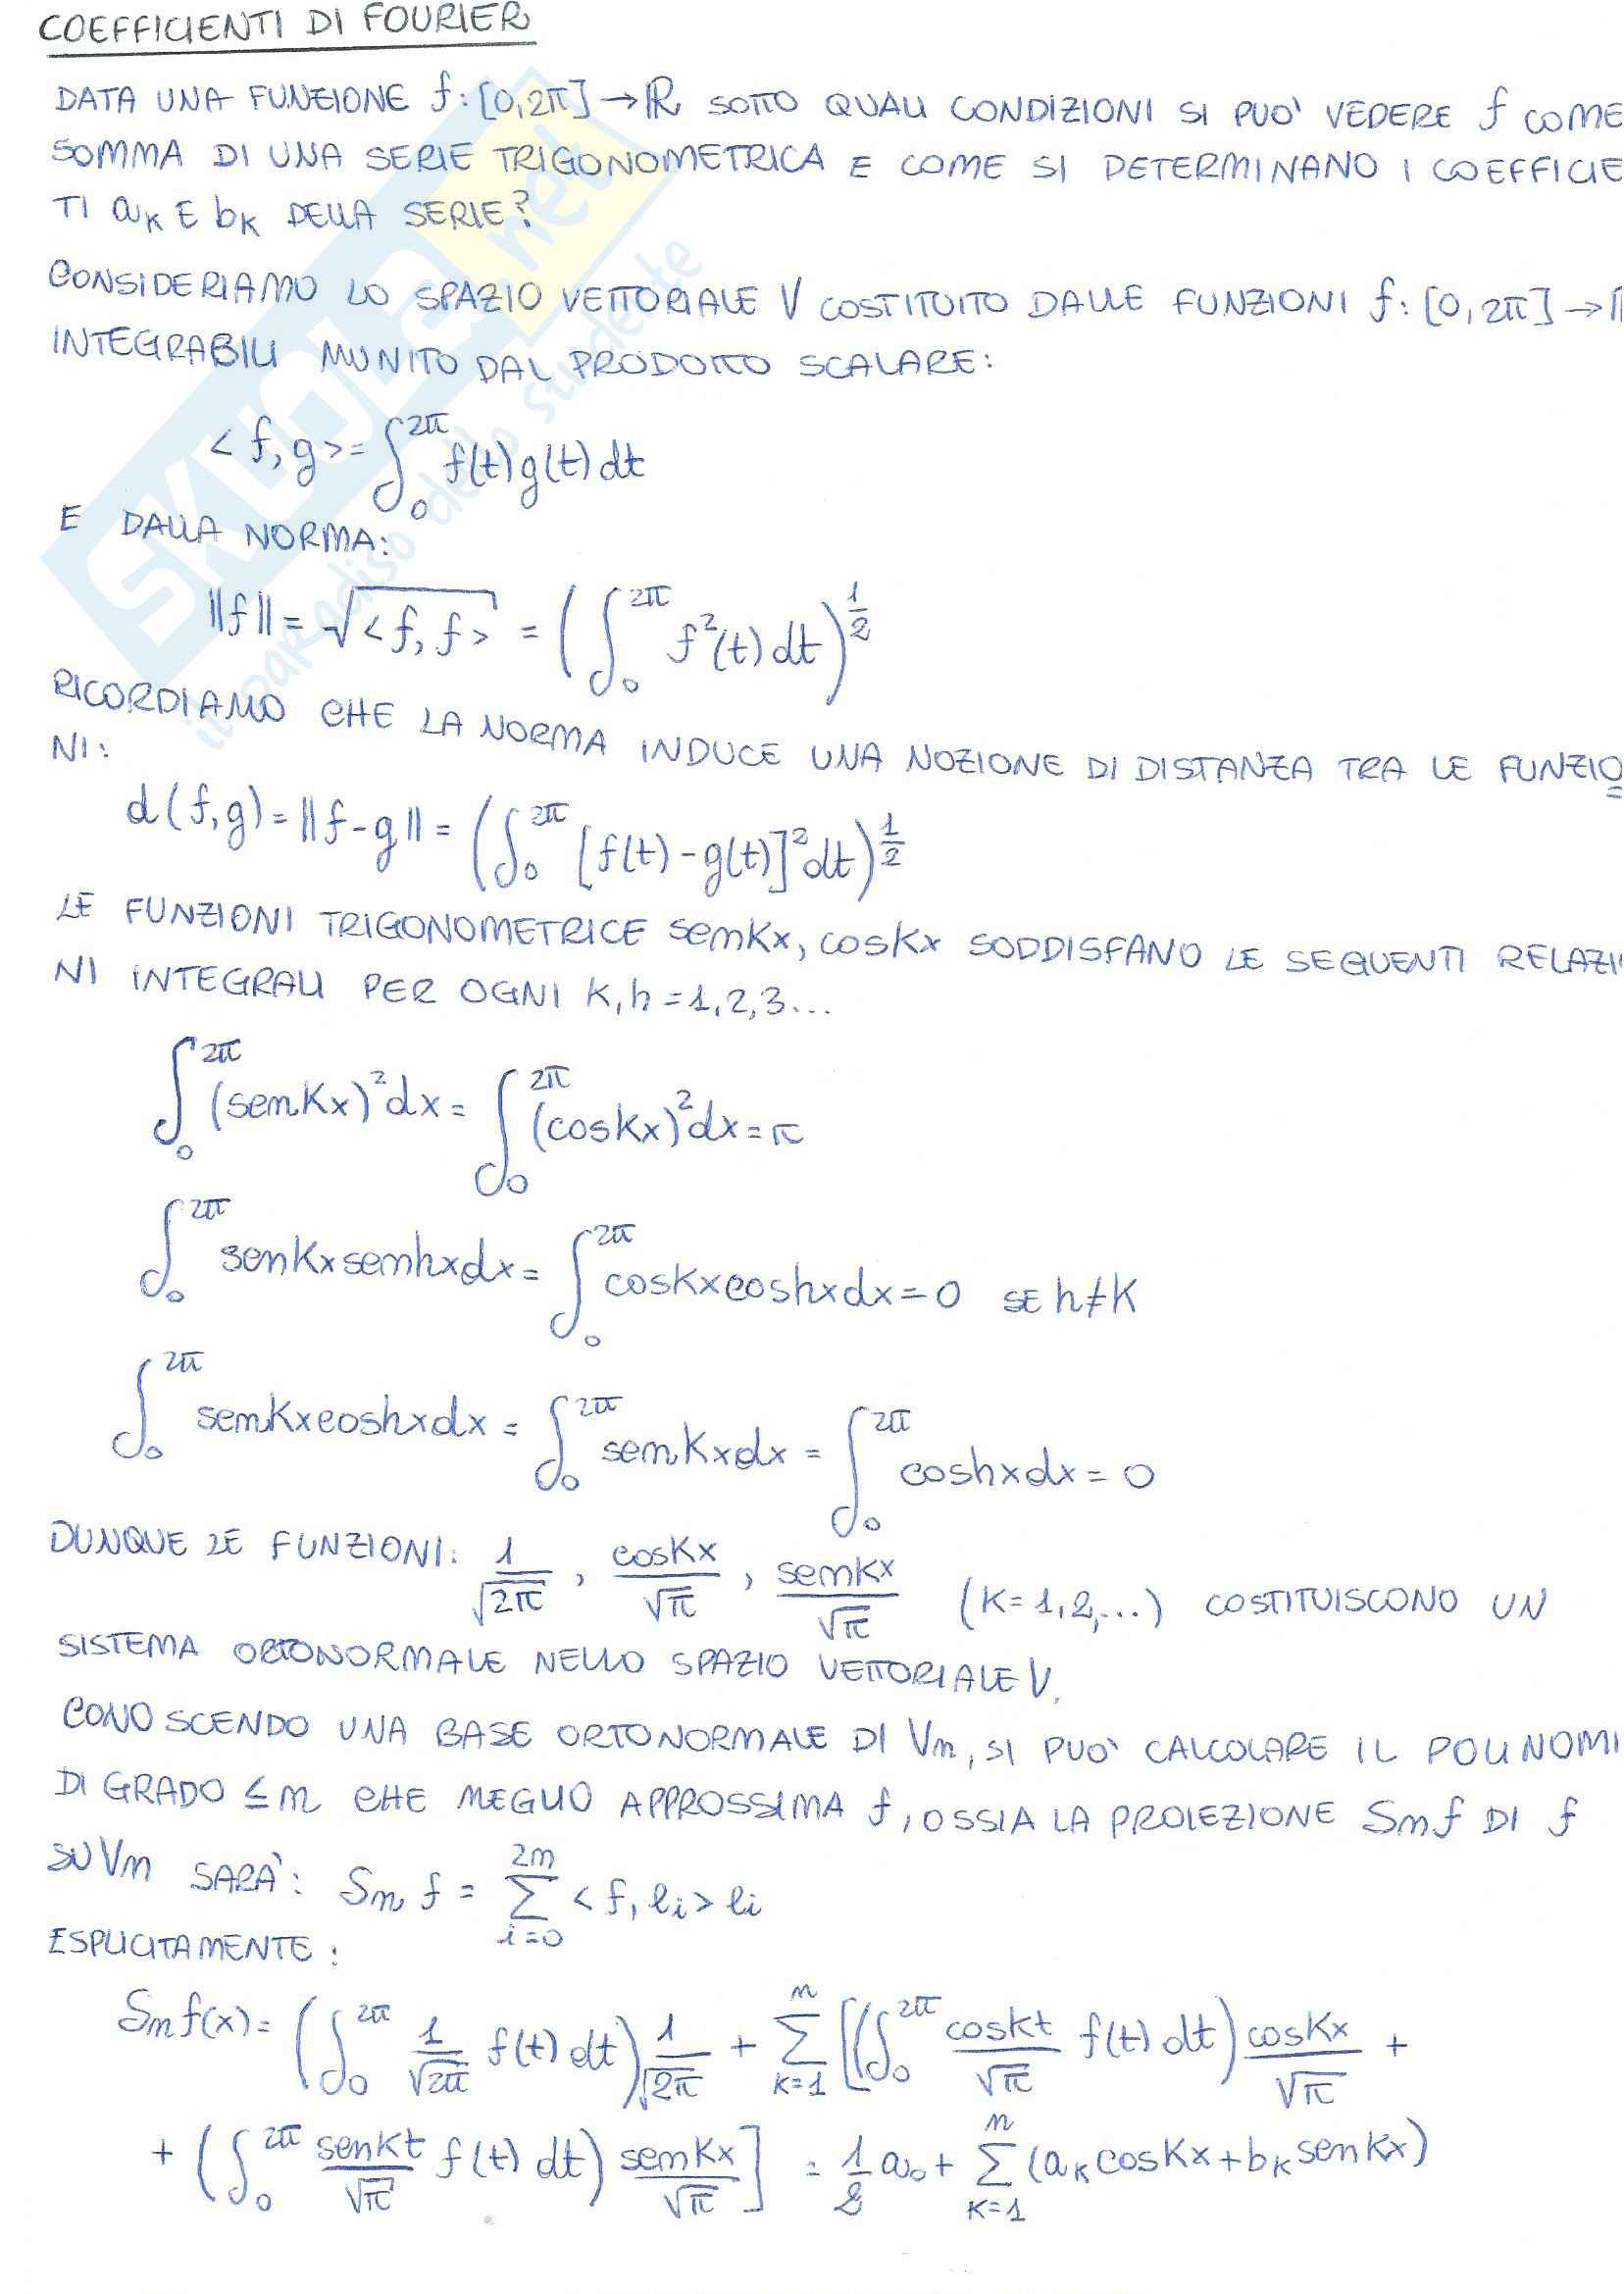 COEFFICIENTI DI FOURIER
DATA UNA FUNZIONE f:[0,2π]→ℝ SOTTO QUALI CONDIZIONI SI PUO' VEDERE f COME
SOMMA DI UNA SERIE TRIGONOMETRICA E COME SI DETERMINANO I COEFFICIE
TI aₖ E bₖ DELLA SERIE?
CONSIDERIAMO LO SPAZIO VETTORIALE V COSTITUITO DALLE FUNZIONI f:[0,2π]→ℝ
INTEGRABILI MUNITO DAL PRODOTTO SCALARE:
<f,g>=∫₀^{2π} f(t)g(t)dt
E DALLA NORMA:
||f||=√<f,f> = (∫₀^{2π} f²(t)dt)^{1/2}
RICORDIAMO CHE LA NORMA INDUCE UNA NOZIONE DI DISTANZA TRA LE FUNZIO
NI:
d(f,g)=||f-g||=(∫₀^{2π} [f(t)-g(t)]²dt)^{1/2}
LE FUNZIONI TRIGONOMETRICE senKx, cosKx SODDISFANO LE SEGUENTI RELAZI
NI INTEGRALI PER OGNI K,h=1,2,3...
∫₀^{2π} (senKx)²dx=∫₀^{2π} (cosKx)²dx=π
∫₀^{2π} senKxsenhxdx=∫₀^{2π} cosKxcoshxdx=0 SE h≠K
∫₀^{2π} senKxcoshxdx=∫₀^{2π} senKxdx=∫₀^{2π} coshxdx=0
DUNQUE LE FUNZIONI: 1/√2π, cosKx/√π, senKx/√π (K=1,2,...) COSTITUISCONO UN
SISTEMA ORTONORMALE NELLO SPAZIO VETTORIALE V.
CONOSCENDO UNA BASE ORTONORMALE DI Vn, SI PUO' CALCOLARE IL POLINOMI
DI GRADO ≤n CHE MEGLIO APPROSSIMA f, OSSIA LA PROIEZIONE Snf DI f
SU Vn SARÀ: Sn f = ∑_{i=0}^{2n} <f,ei>ei
ESPLICITAMENTE:
Snf(x)=(∫₀^{2π} 1/√2π f(t)dt)1/√2π + ∑_{K=1}^{n} [(∫₀^{2π} coskt/√π f(t)dt)cosKx/√π +
+(∫₀^{2π} senKt/√π f(t)dt)senKx/√π] = 1/2 a₀+ ∑_{K=1}^{n} (aₖcosKx+bₖsenKx)
SKUOLA.net
il paradiso dello studente